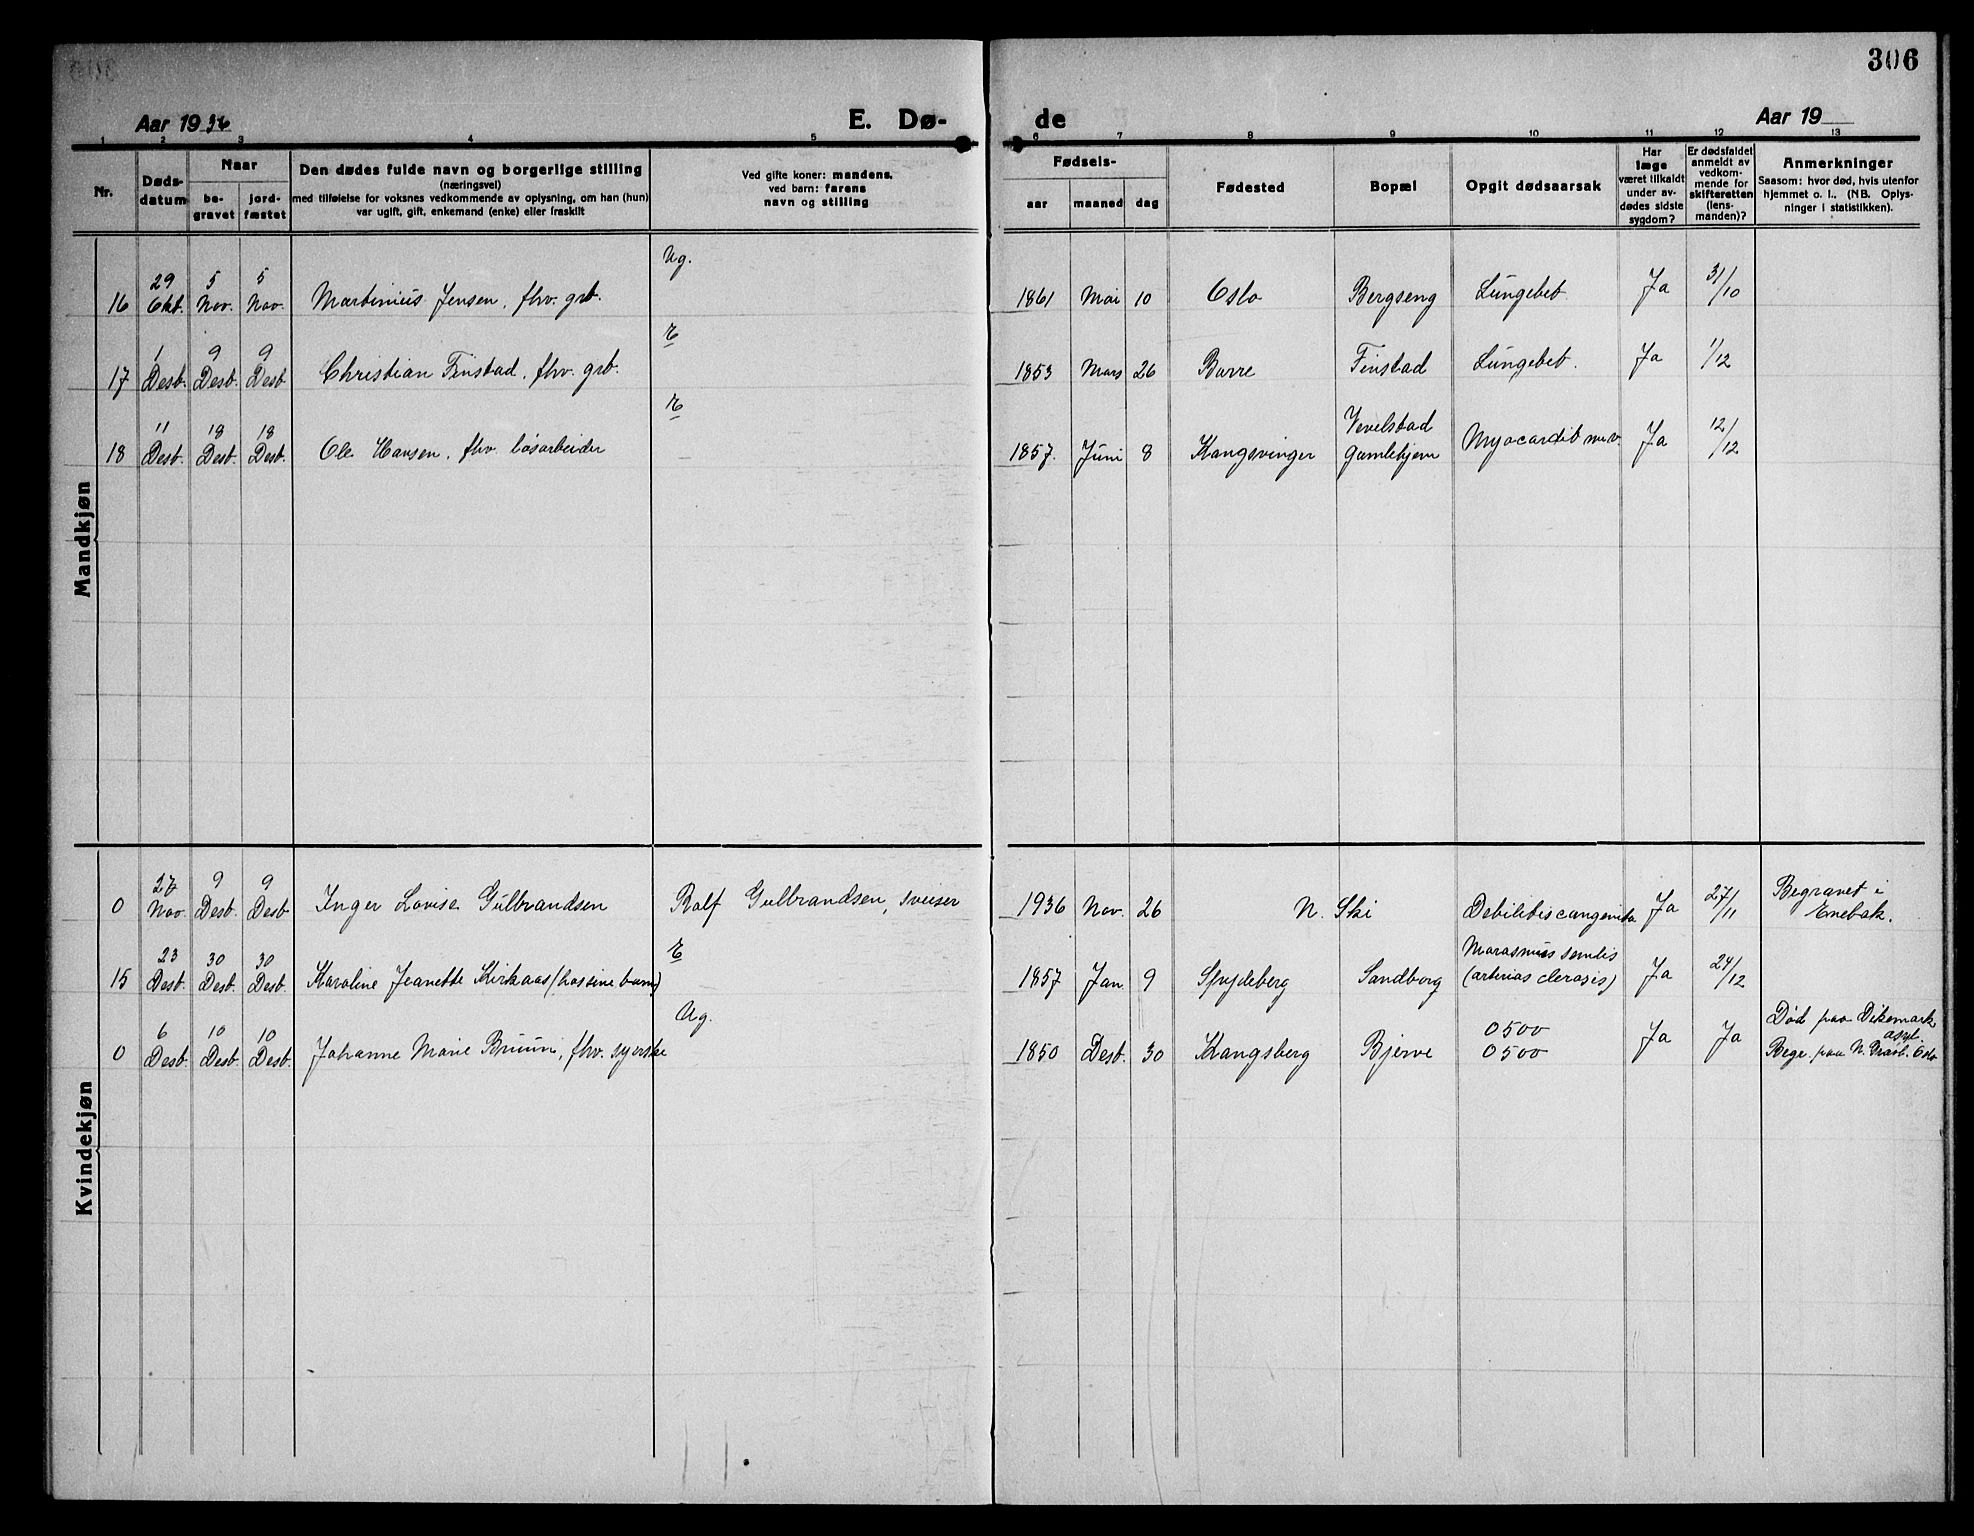 306
Aar 1936
E. Dø-
de
Aar 19
1 2 3 4 5 6 7 8 9 10 11 12 13
Nr.
Døds-
datum
Naar
be-
gravet
jord-
fæstet
Den dødes fulde navn og borgerlige stilling
(næringsvei)
med tilføielse for voksnes vedkommende av oplysning, om han (hun)
var ugift, gift, enkemand (enke) eller fraskilt
Ved gifte koner: mandens,
ved barn: farens
navn og stilling
Fødsels-
aar
maaned
dag
Fødested
Bopæl
Opgit dødsaarsak
Har
læge
været tilkaldt
under av-
dødes sidste
sygdom?
Er dødsfaldet
anmeldt av
vedkom-
mende for
skifteretten
(lens-
manden)?
Anmerkninger
Saasom: hvor død, hvis utenfor
hjemmet o. l., (NB. Oplys-
ninger i statistikken).
Mandkjøn
Ug.
29 5 5
16 Okt. Nov. Nov. Martinius Jensen, fhv. grb. 1861 Mai 10 Oslo Bergseng Lungebet. Ja 31/10
E
1 9 9
17 Desb. Desb. Desb Christian Finstad, fhv. grb. 1853 Mars 26 Borre Finstad Lungebet. Ja 1/12
E
11 18 18 Vevelstad
18 Desb. Desb. Desb. Ole Hansen, fhv. løsarbeider 1857. Juni 8 Kongsvinger Gamlehjem Myocardit Ja 12/12
Kvindekjøn
27 9 9 Begravet i
0 Nov. Desb. Desb Inger Lovise Gulbrandsen Rolf Gulbrandsen, sveiser 1936 Nov. 26 N. Ski Debilitis congenita Ja 27/11 Enebak.
E
23 30 30 Marasmus senilis
15 Desb. Desb. Desb. Karoline Jeanette Kirkaas 1857 Jan. 9 Spydeberg Sandborg (arterios clerosis) Ja 24/12
Ug.
6 10 10 0500 Død paa Dikemark
asyl.
0 Desb. Desb. Desb. Johanne Marie Bruun, fhv. syerske 1850 Desb. 30 Kongsberg Bjerve 0500 Ja Ja Begr. paa N. Gravl. Oslo